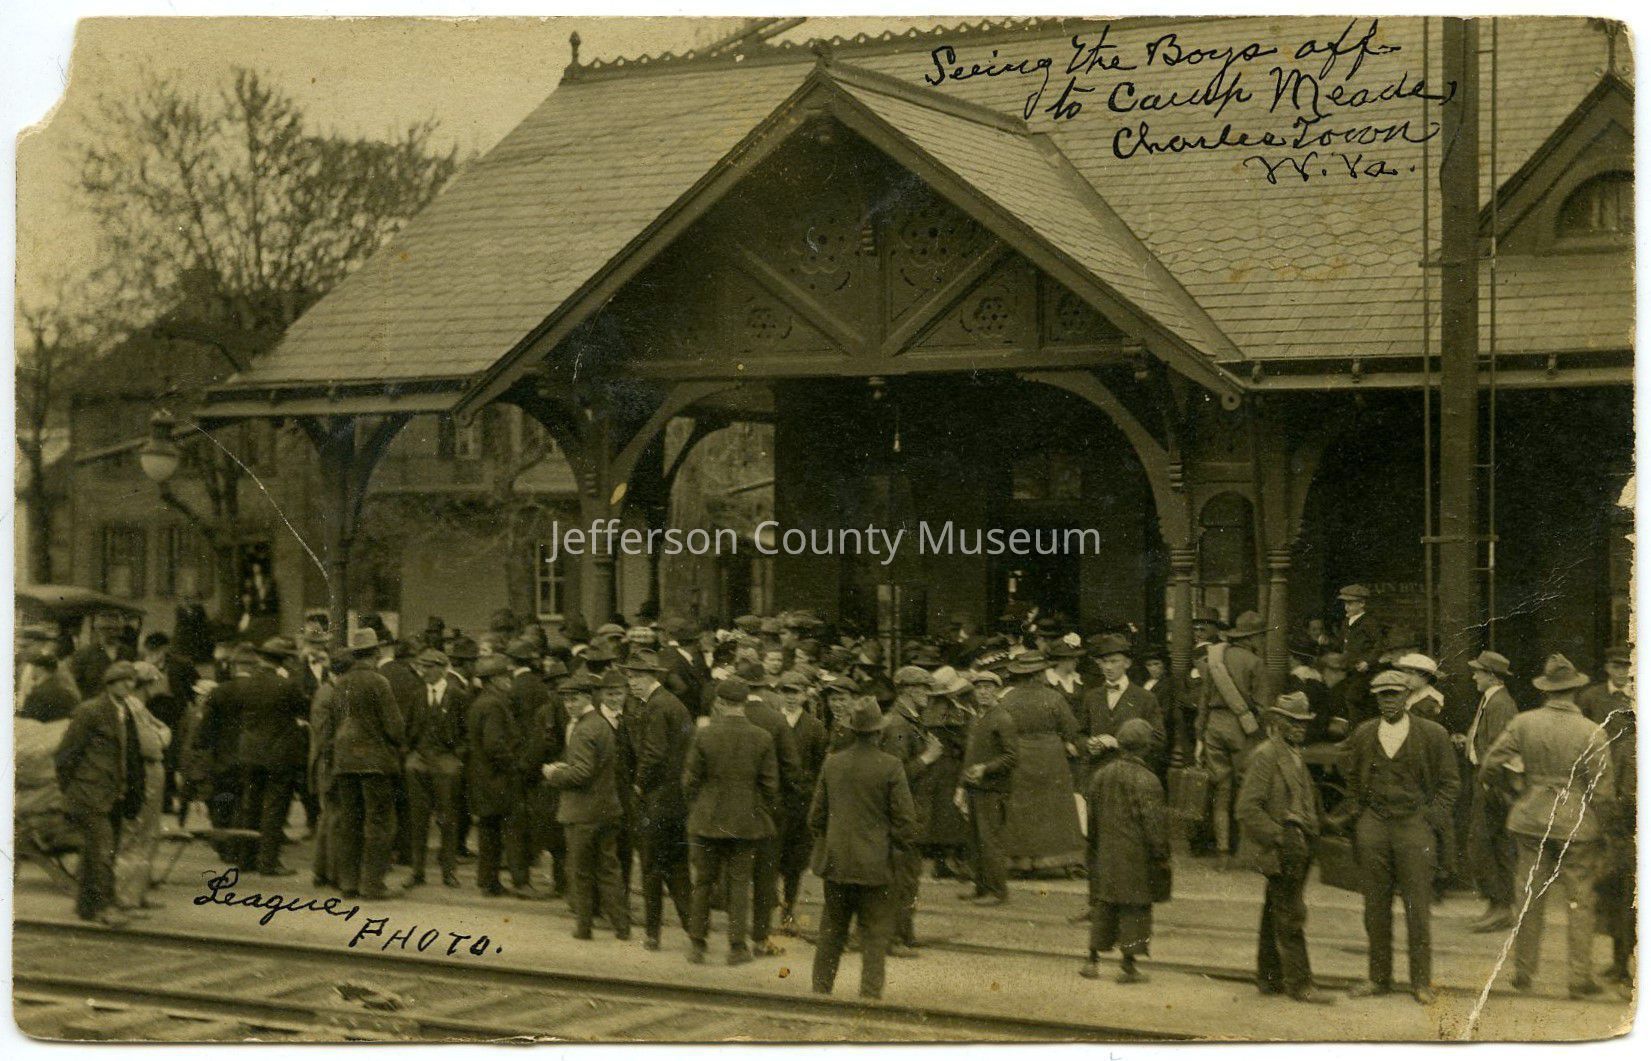 Seeing the Boys off
to Camp Meade,
Charles Town
W. Va.
Jefferson County Museum
League,
PHOTO.